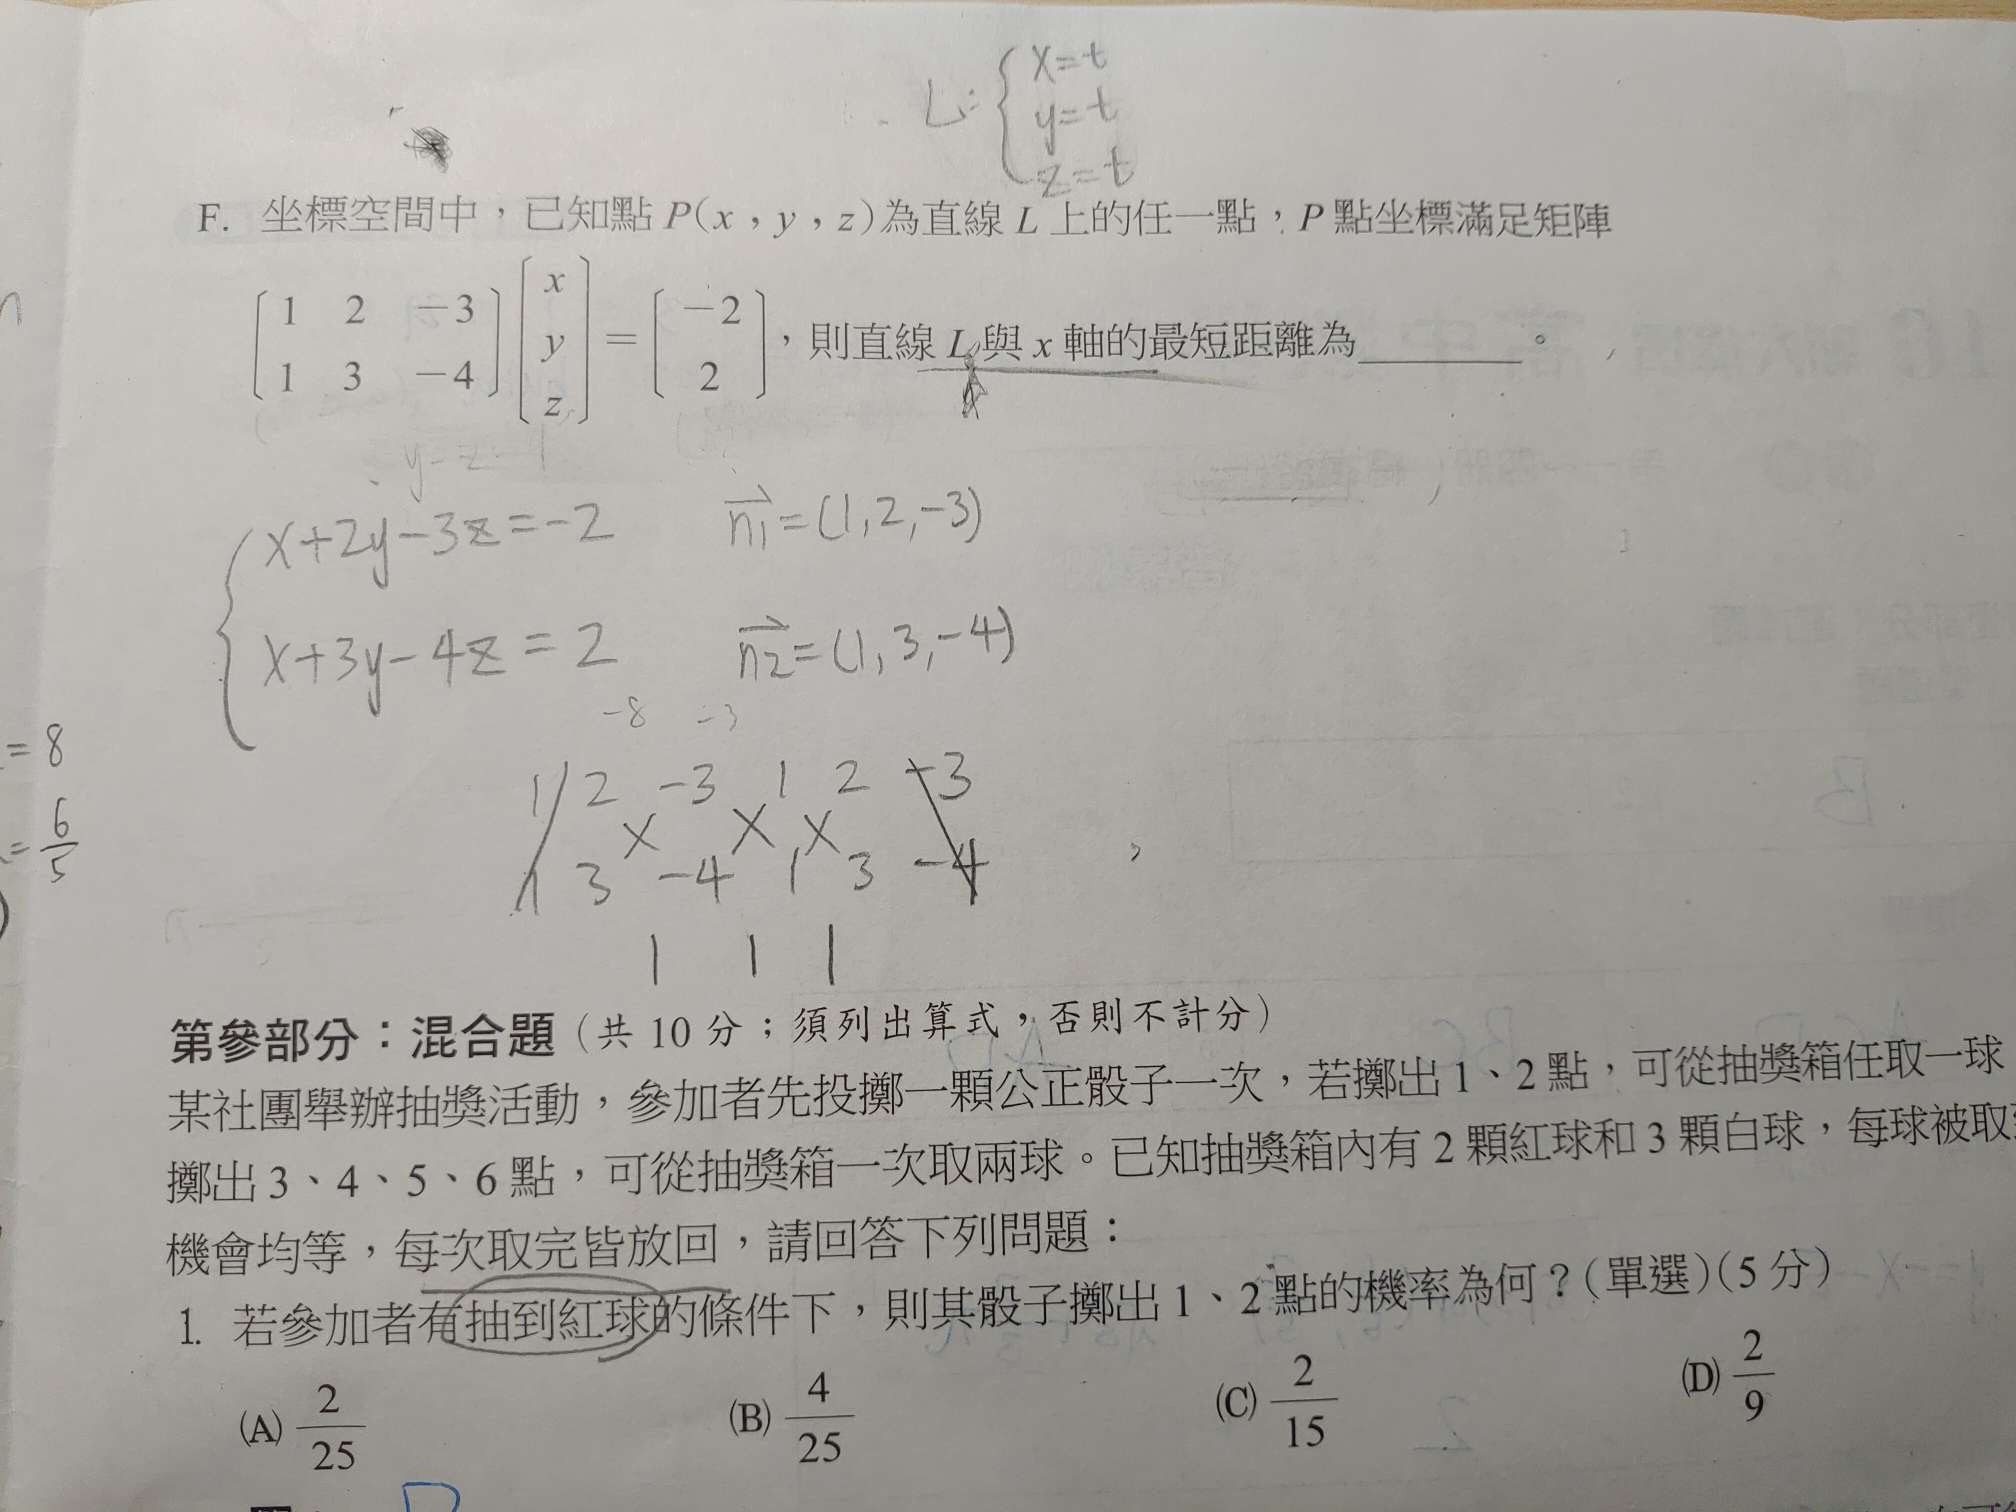 L: { x=t
y=t
z=t
F. 坐標空間中，已知點 P(x，y，z)為直線 L 上的任一點，P 點坐標滿足矩陣
[1 2 −3] [x] = [−2]
[1 3 −4] [y] [2]，則直線 L 與 x 軸的最短距離為________。
[z]
x+2y-3z=-2 n1=(1,2,-3)
x+3y-4z=2 n2=(1,3,-4)
-8 -3
1 2 -3 1 2 -3
1 3 -4 1 3 -4
1 1 1
=8
= 6/5
第參部分：混合題（共 10 分；須列出算式，否則不計分）
某社團舉辦抽獎活動，參加者先投擲一顆公正骰子一次，若擲出 1、2 點，可從抽獎箱任取一球
擲出 3、4、5、6 點，可從抽獎箱一次取兩球。已知抽獎箱內有 2 顆紅球和 3 顆白球，每球被取
機會均等，每次取完皆放回，請回答下列問題：
1. 若參加者有抽到紅球的條件下，則其骰子擲出 1、2 點的機率為何？(單選)(5 分)
(A) 2/25 (B) 4/25 (C) 2/15 (D) 2/9